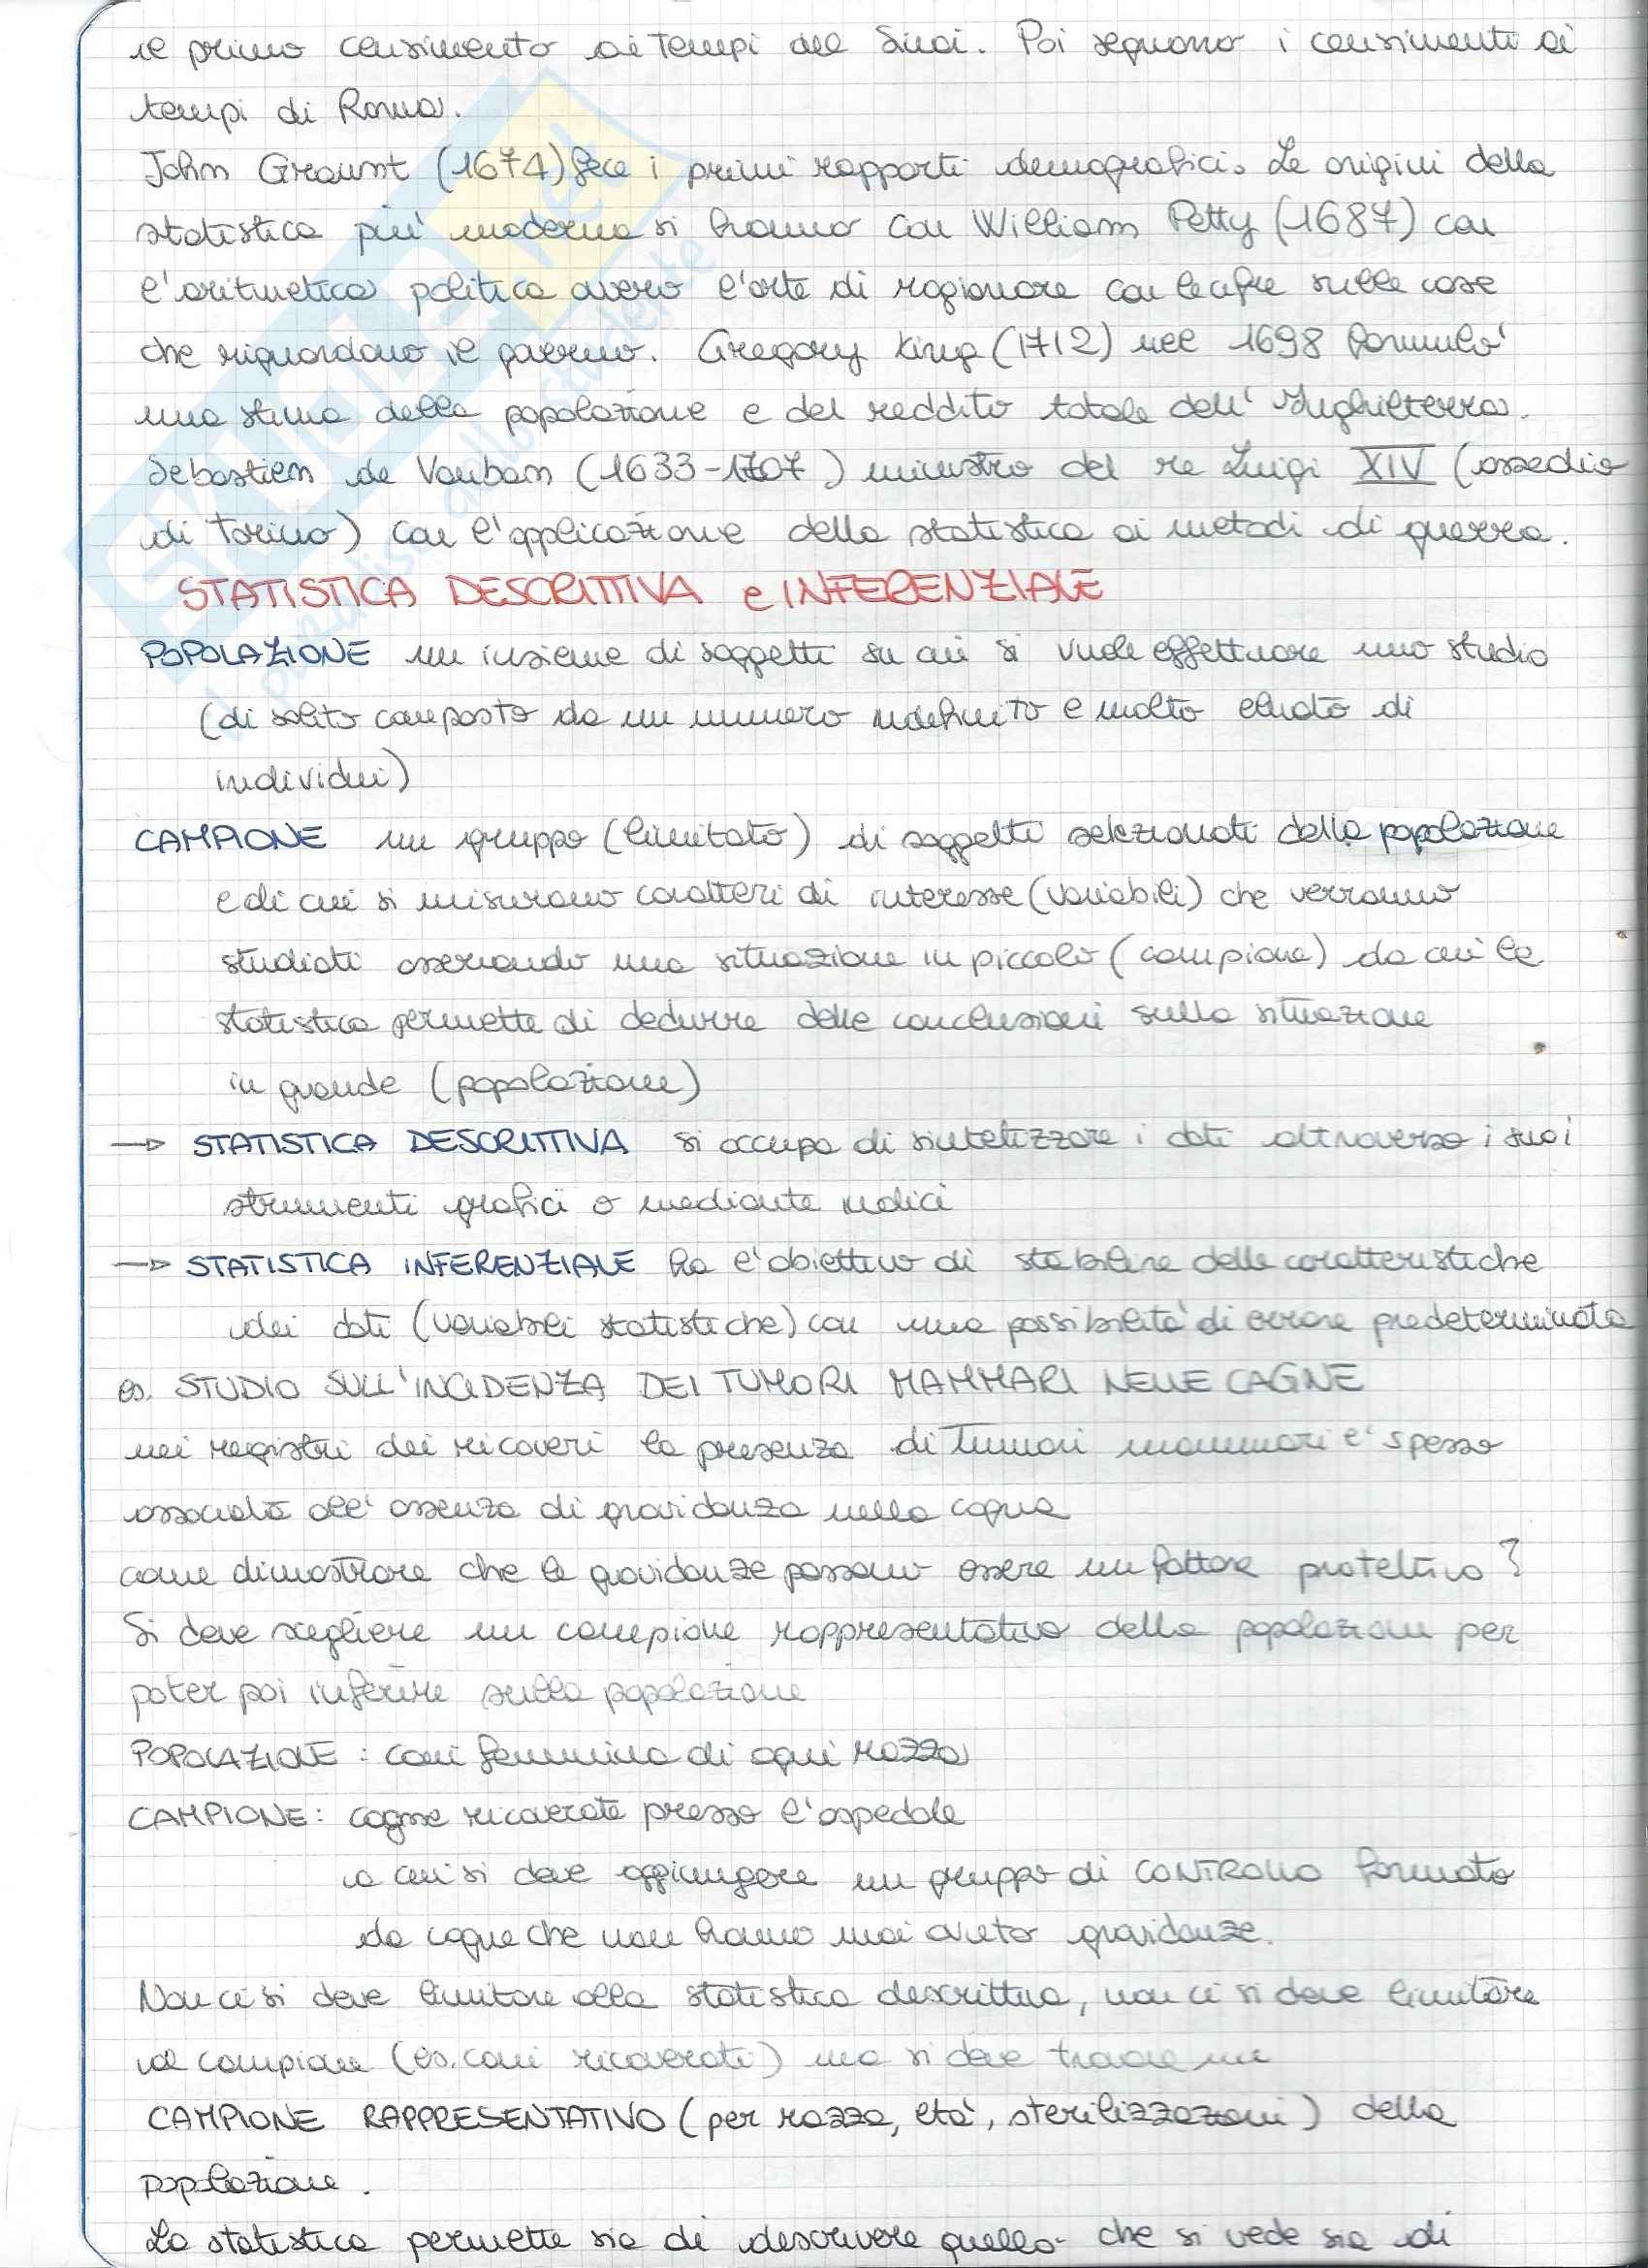 il primo censimento ai tempi del Sinai. Poi seguono i censimenti ai
tempi di Roma.
John Graunt (1674) fece i primi rapporti demografici. Le origini della
statistica più moderna si hanno con William Petty (1687) con
l'aritmetica politica ovvero l'arte di ragionare con le cifre sulle cose
che riguardano il governo. Gregory King (1712) nel 1698 formulò
una stima della popolazione e del reddito totale dell'Inghilterra.
Sebastien de Vauban (1633-1707) ministro del re Luigi XIV (assedio
di Torino) con l'applicazione della statistica ai metodi di guerra.
STATISTICA DESCRITTIVA e INFERENZIALE
POPOLAZIONE un insieme di soggetti su cui si vuole effettuare uno studio
(di solito composto da un numero indefinito e molto elevato di
individui)
CAMPIONE un gruppo (limitato) di soggetti selezionati dalla popolazione
e di cui si misurano caratteri di interesse (variabili) che verranno
studiati osservando una situazione in piccolo (campione) da cui la
statistica permette di dedurre delle conclusioni sulla situazione
in grande (popolazione)
→ STATISTICA DESCRITTIVA si occupa di sintetizzare i dati attraverso i suoi
strumenti grafici o mediante indici
→ STATISTICA INFERENZIALE ha l'obiettivo di stabilire delle caratteristiche
dei dati (variabili statistiche) con una possibilità di errore predeterminata
es. STUDIO SULL'INCIDENZA DEI TUMORI MAMMARI NELLE CAGNE
nei registri dei ricoveri la presenza di tumori mammari e' spesso
associata all'assenza di gravidanza nella cagna
come dimostrare che le gravidanze possano essere un fattore protettivo?
Si deve scegliere un campione rappresentativo della popolazione per
poter poi inferire sulla popolazione
POPOLAZIONE: cani femmina di ogni razza
CAMPIONE: cagne ricoverate presso l'ospedale
a cui si deve aggiungere un gruppo di CONTROLLO formato
da cagne che non hanno mai avuto gravidanze.
Non ci si deve limitare alla statistica descrittiva, non ci si deve limitare
al campione (es. cani ricoverati) ma si deve trovare un
CAMPIONE RAPPRESENTATIVO (per razza, età, sterilizzazioni) della
popolazione.
La statistica permette sia di descrivere quello che si vede sia di